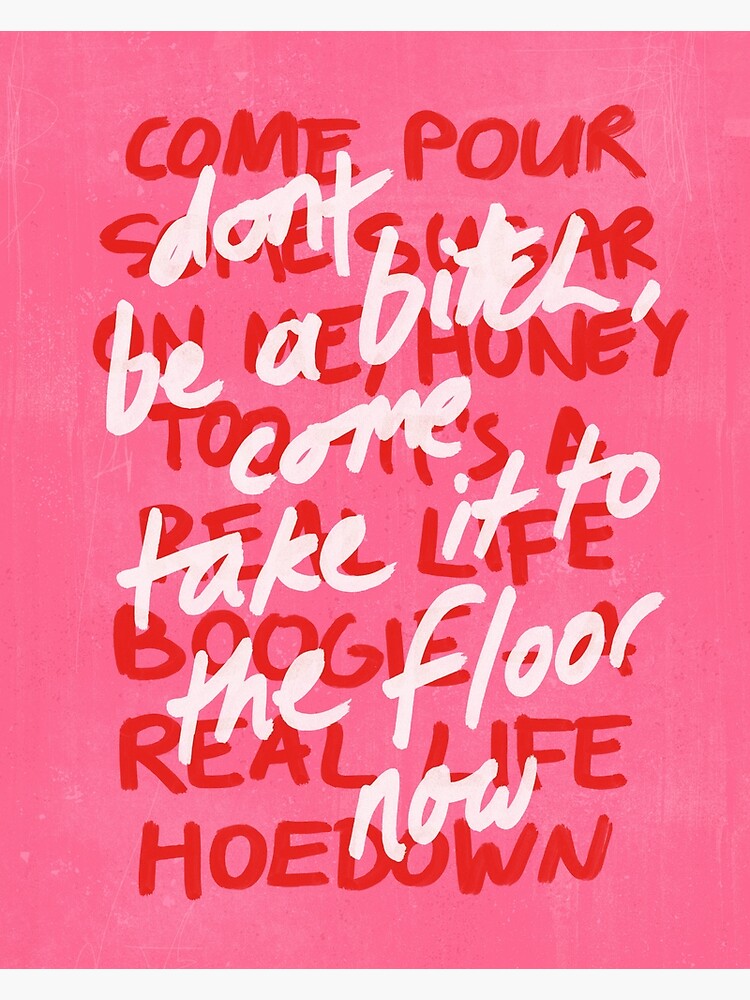 COME POUR
SOME SUGAR
ON ME, HONEY
TOO - IT'S A
REAL LIFE
BOOGIE - A
REAL LIFE
HOEDOWN
dont
be a bitch,
come
take it to
the floor
now